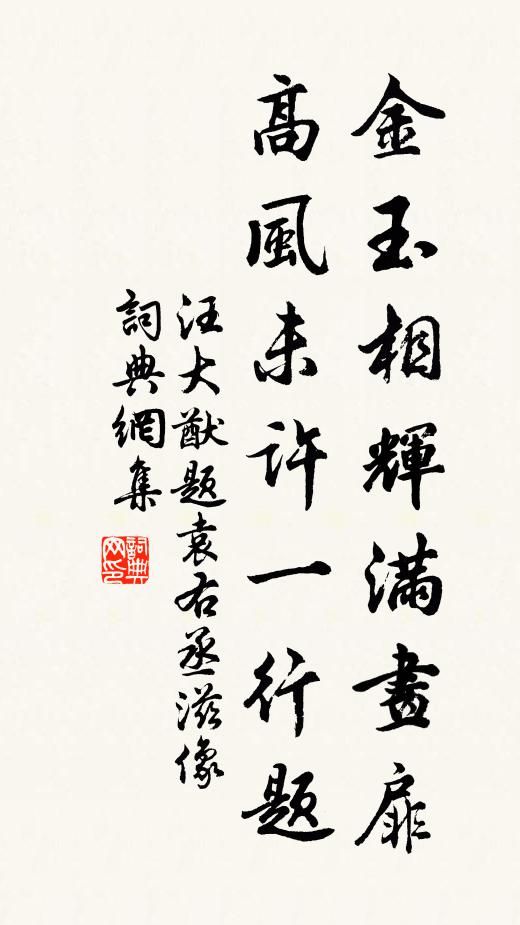 金玉相輝滿畫扉
高風未許一行題
汪大猷題袁右丞滋像
詞典網集
詞典网印